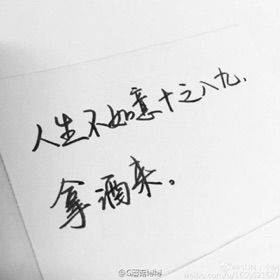 人生不如意十之八九，
拿酒来。